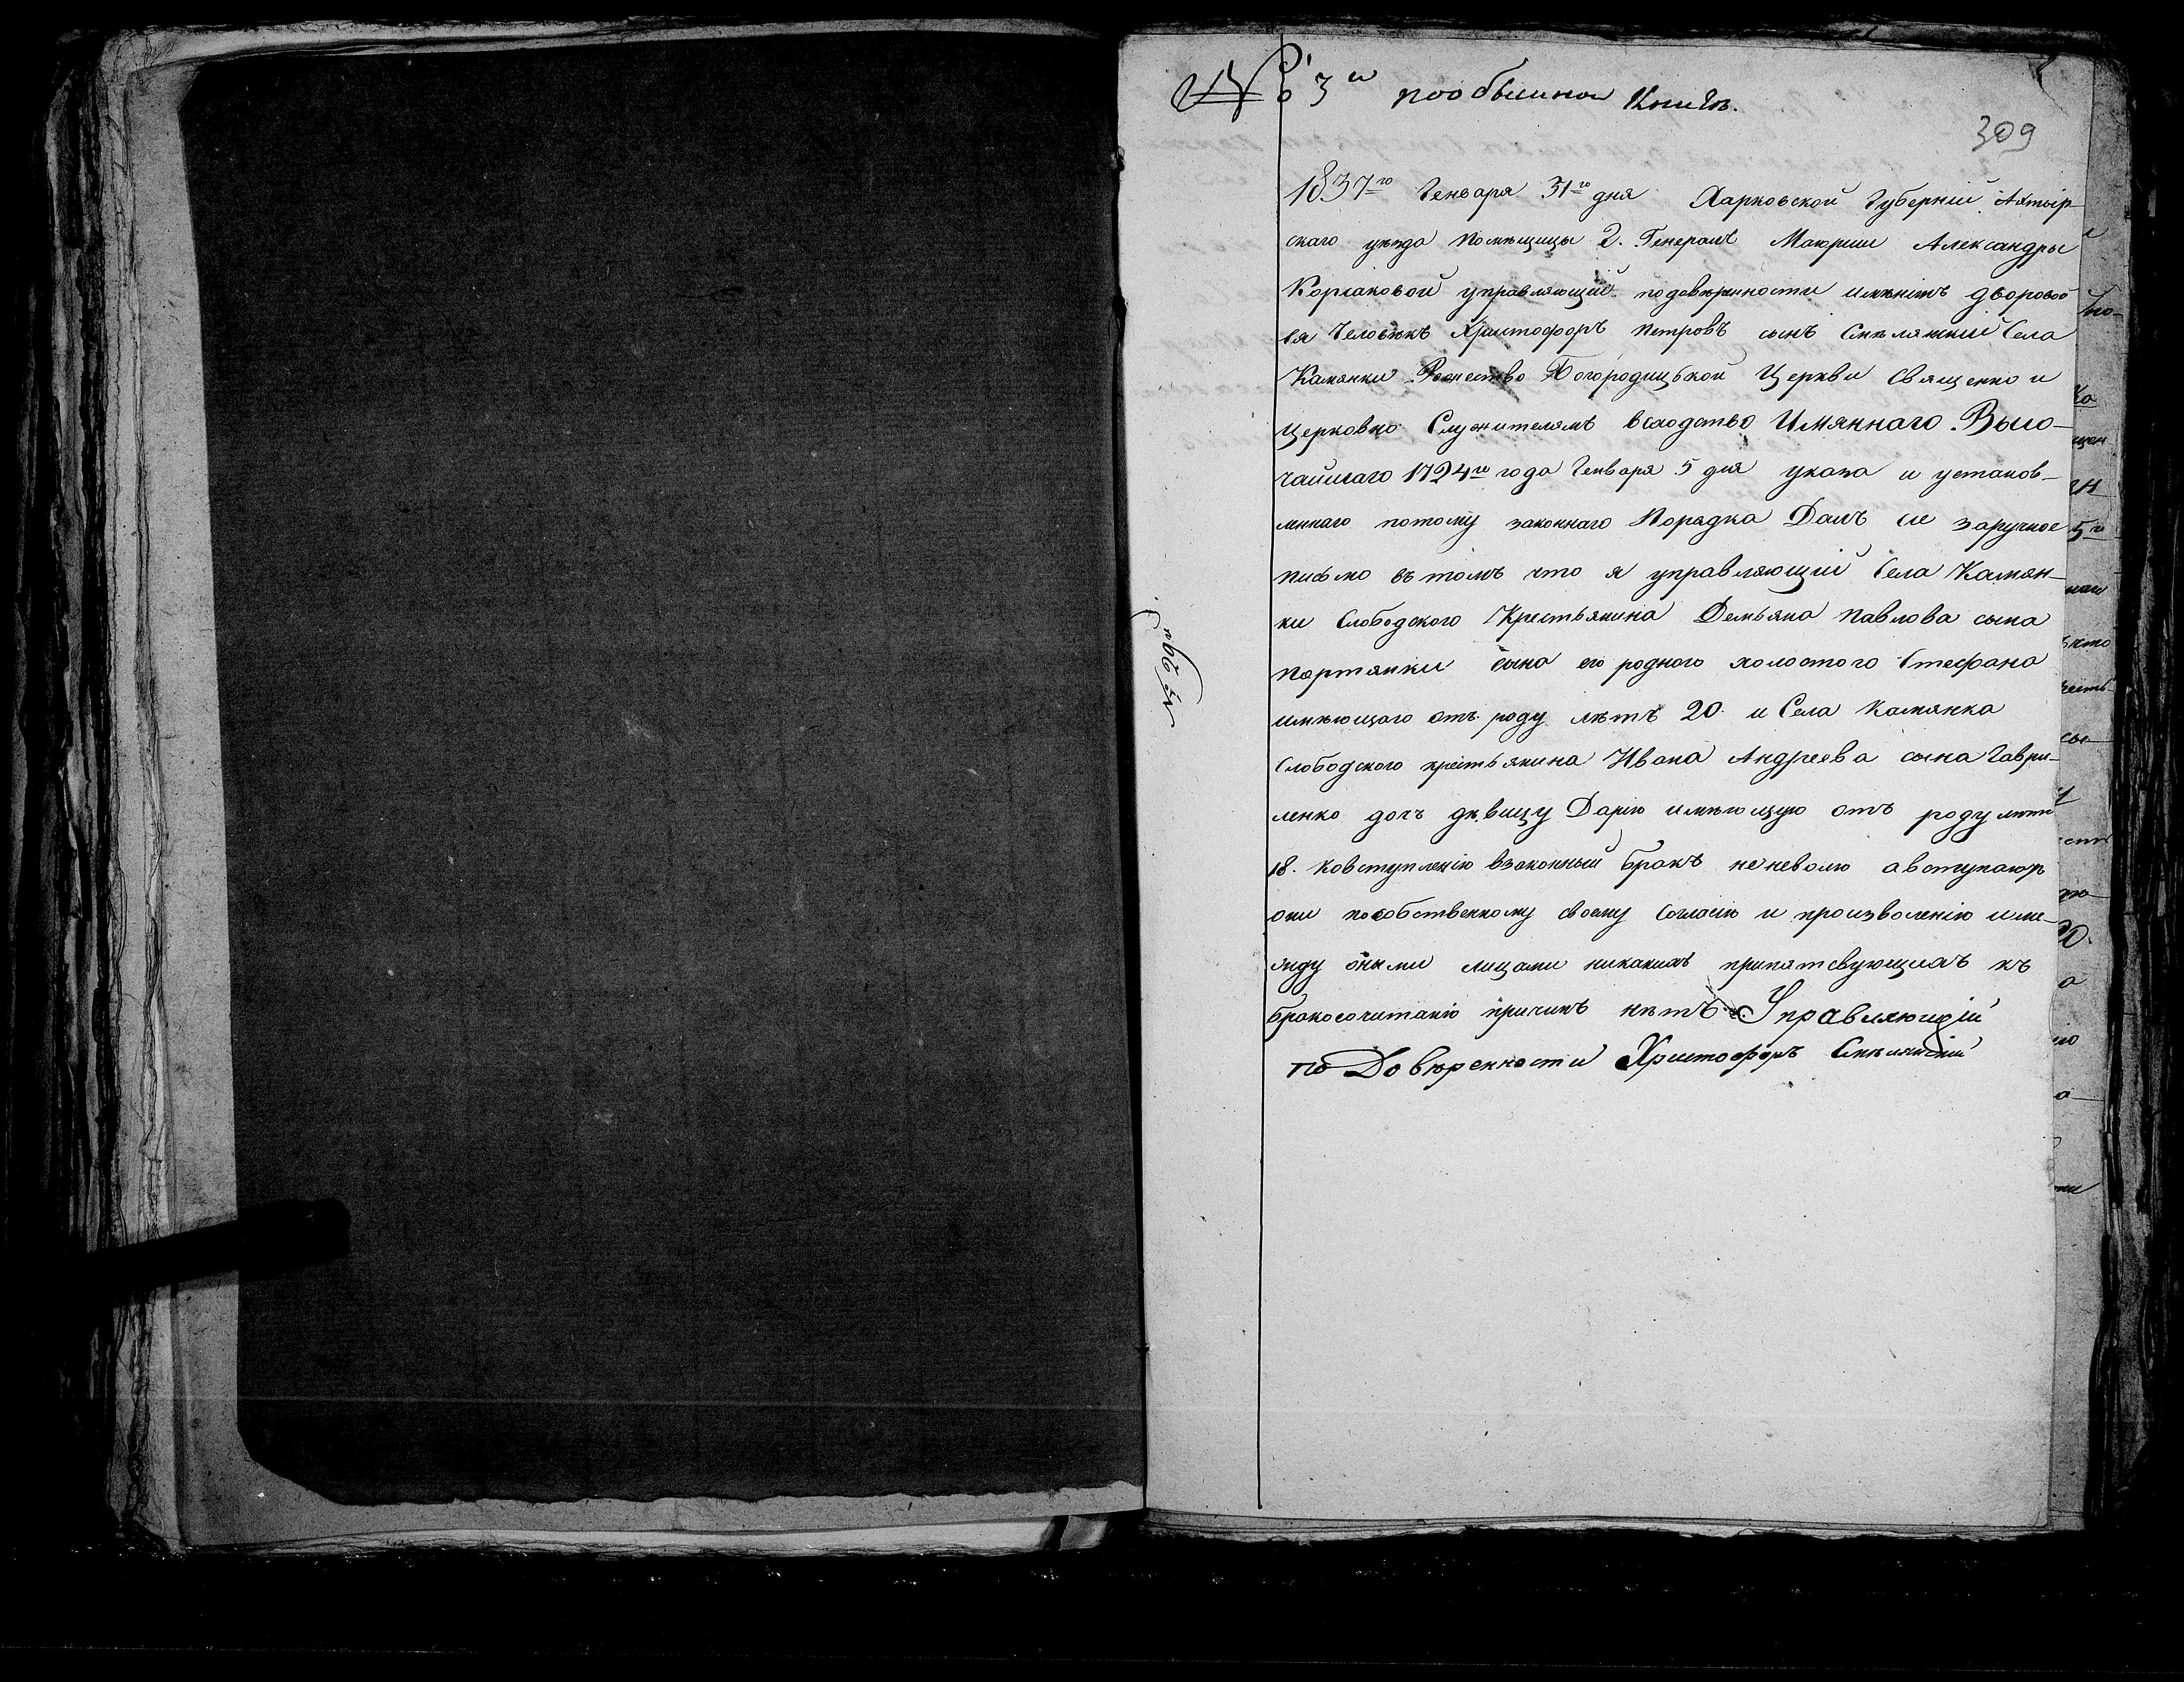 № 3й пообыскной Книгѣ.
309
1837го Генваря 31го дня Харковской Губерніи Ахтыр-
скаго уѣзда помѣщицы Г. Генералъ Маюрши Александры
Корсаковой управляющій подовѣренности имѣніемъ дворовой
ея Человѣкъ Христофоръ Петровъ сынъ Села
Камянки Рожество Богородицской Церкви Священно и
церковно Служителямъ всходство Имяннаго Высо-
чайшаго 1724го года Генваря 5 дня указа и установ-
леннаго потому законнаго Порядка Далъ сіе заручное
письмо въ томъ что я управляющій Села Камян-
ки Слободского Крестьянина Демьяна Павлова сына
портянки сына его родного холостого Стефана
имѣющаго отъ роду лѣтъ 20. и Села Камянка
Слободского крестьянина Ивана Андреева сына Гаври-
ленко дочъ дѣвицу Дарію имѣющую отъ роду лѣтъ
18. ковступленію взаконный бракъ неневолю авступаютъ
они пособственному своему Согласію и произволенію име-
жду оными лицами никакихъ припятсвующихъ къ
бракосочитанію причинъ нѣтъ. Управляющій
по Довѣренности Христофоръ